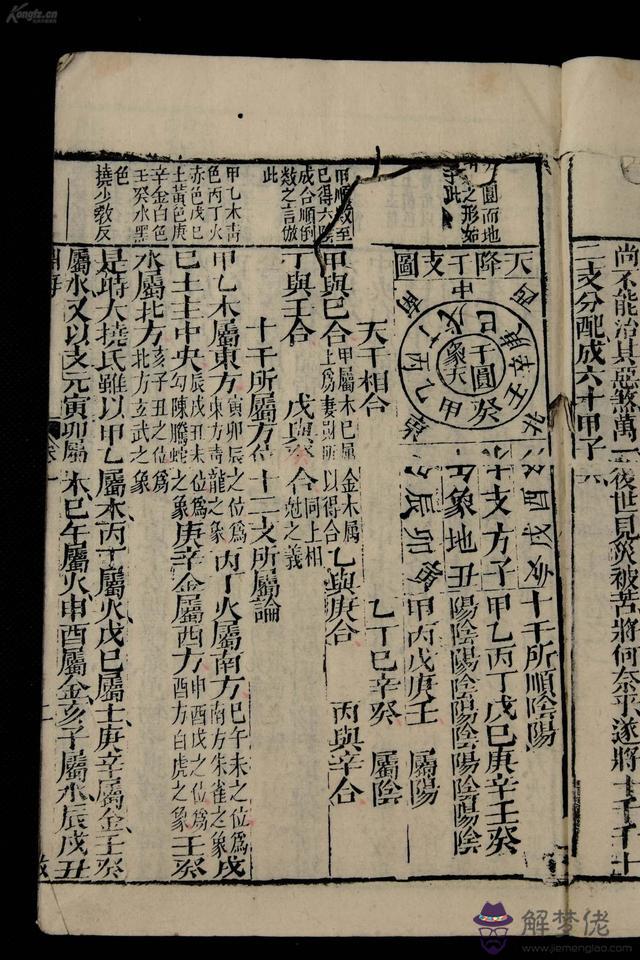 Kongfz.cn
尚不能治其惡煞萬一後世見災被苦將何奈乎遂將十干十
二支分配成六十甲子
天降干支圖
干圓象天
甲乙丙丁戊己庚辛壬癸
東南中西北
十支方子
象地丑
寅卯辰
酉戌亥
十干所順陰陽
甲乙丙丁戊己庚辛壬癸
陽陰陽陰陽陰陽陰陽陰
甲丙戊庚壬 屬陽
乙丁己辛癸 屬陰
天干相合
甲與己合 甲屬木己屬土為妻財所以得合 乙與庚合 丙與辛合
金木屬
丁與壬合 戊與癸合 同上相尅之義
十干所屬方位 十二支所屬論
甲乙木屬東方 寅卯辰之位為東方青龍之象 丙丁火屬南方 巳午未之位為南方朱雀之象 戊
己土主中央 辰戌丑未位為勾陳螣蛇之象 庚辛金屬西方 申酉戌之位為西方白虎之象 壬癸
水屬北方 亥子丑之位為北方玄武之象
是時大撓氏雖以甲乙屬木丙丁屬火戊己屬土庚辛屬金壬癸
屬水又以支元寅卯屬木巳午屬火申酉屬金亥子屬水辰戌丑
圓而地
之形如
此
甲順數至
己得六陰
成合順倒
數之言倣
此
甲乙木青
色丙丁火
赤色戊己
土黃色庚
辛金白色
壬癸水黑
色
撓少教反
淵海
卷一
二
解梦佬
www.jiemenglao.com